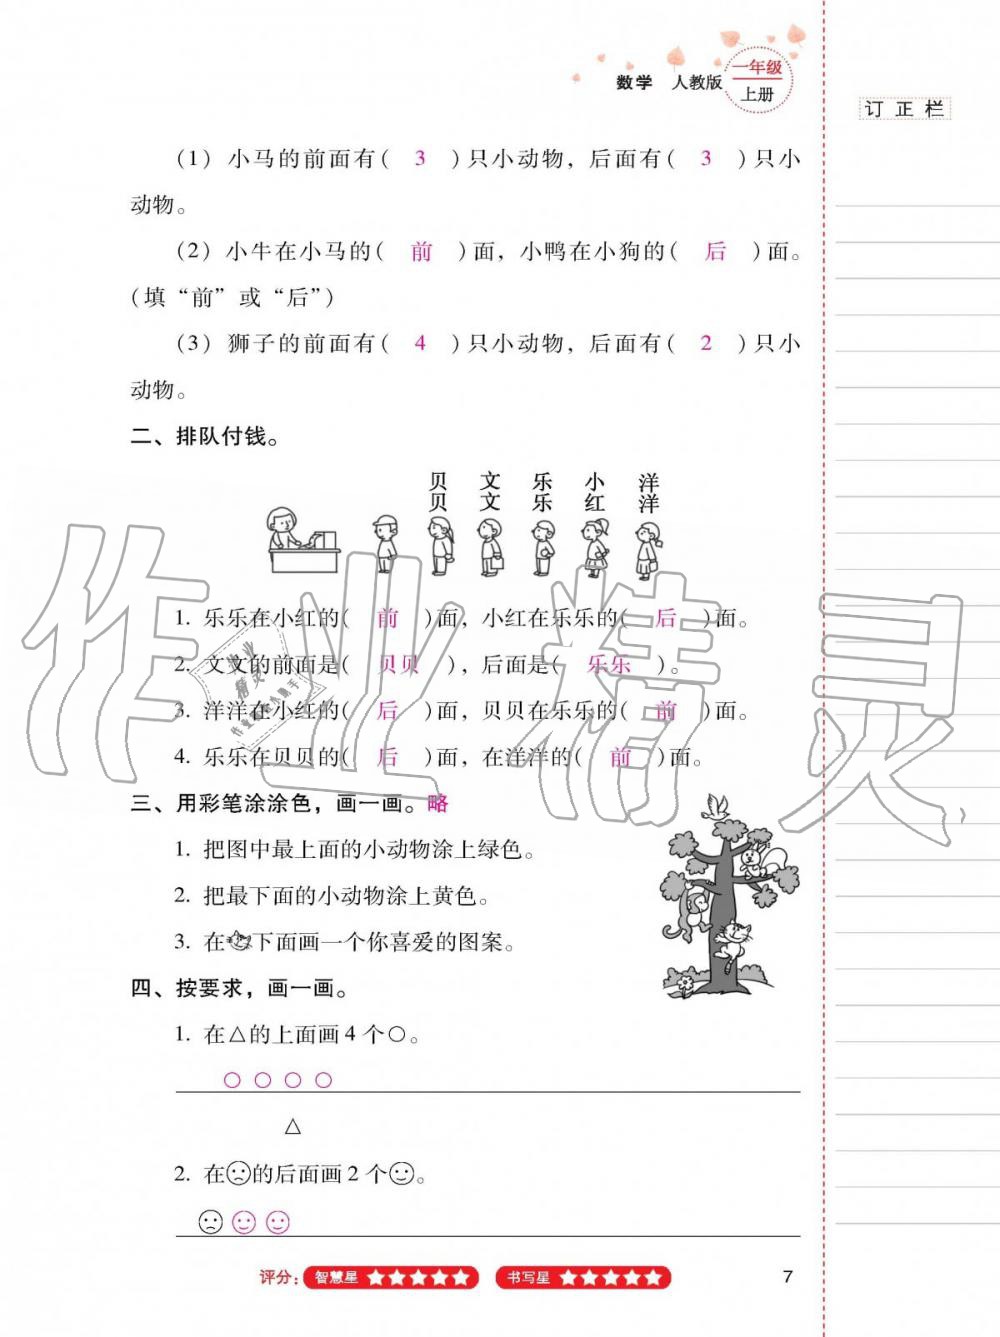 数学 人教版 一年级
上册
订正栏
（1）小马的前面有( 3 )只小动物，后面有( 3 )只小
动物。
（2）小牛在小马的( 前 )面，小鸭在小狗的( 后 )面。
(填“前”或“后”)
（3）狮子的前面有( 4 )只小动物，后面有( 2 )只小
动物。
二、排队付钱。
贝贝 文文 乐乐 小红 洋洋
1. 乐乐在小红的( 前 )面，小红在乐乐的( 后 )面。
2. 文文的前面是( 贝贝 )，后面是( 乐乐 )。
3. 洋洋在小红的( 后 )面，贝贝在乐乐的( 前 )面。
4. 乐乐在贝贝的( 后 )面，在洋洋的( 前 )面。
三、用彩笔涂涂色，画一画。略
1. 把图中最上面的小动物涂上绿色。
2. 把最下面的小动物涂上黄色。
3. 在下面画一个你喜爱的图案。
四、按要求，画一画。
1. 在△的上面画4个○。
○ ○ ○ ○
△
2. 在☹的后面画2个☺。
☹ ☺ ☺
评分： 智慧星 ★★★★★ 书写星 ★★★★★
7
作业精灵